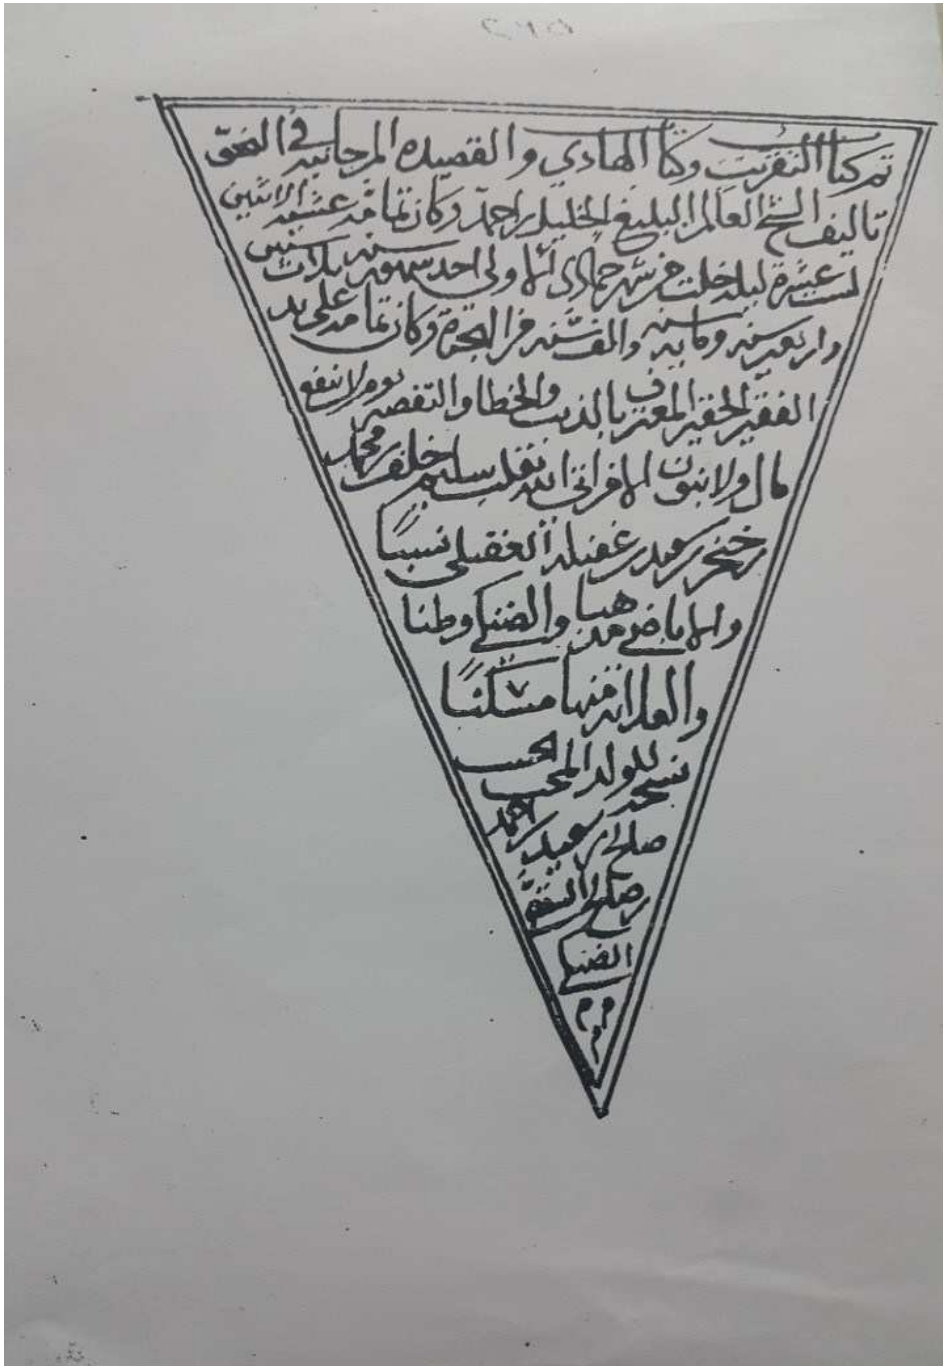 تم كتاب التقريب وكتاب الهادي والقصيده المرجانيه في الفتوى
تاليف الشيخ العالم البليغ الخليل بن احمد وكان تمامه عشية الاثنين
لست عشرة ليله خلت من شهر جمادى الاولى احد شهور سنه ثلاث سنين
واربعين سنه ومايه سنه والف سنه من الهجرة وكان تمامه على يد
الفقير الحقير المعترف بالذنب والخطا والتقصير يوم لا ينفع
مال ولا بنون الا من اتى الله بقلب سليم خلف بن محمد
بن خنجر بن غفيله الغفيلي نسبا
والاباضي مذهبا والضنكي وطنا
والعلاانه منها مسكنا
نسخه للولد المحب المحب
صالح بن سعيد بن احمد
بن صالح
الضنكي
م م م